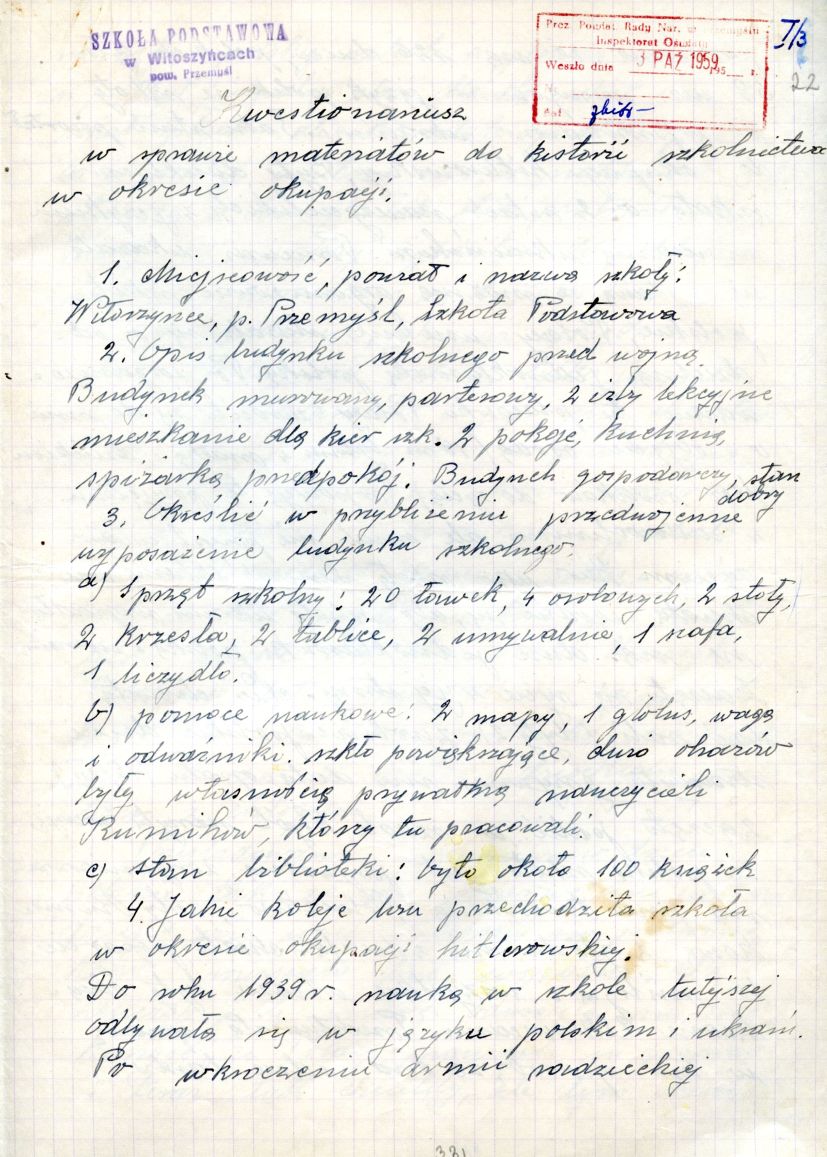 SZKOŁA PODSTAWOWA
w Witoszyńcach
pow. Przemyśl
Prez. Powiat. Rady Nar. w Przemyślu
Inspektorat Oświaty
Weszło dnia 3 PAŹ 1959 195 r.
I/3
22
Kwestionariusz
w sprawie materiałów do historii szkolnictwa
w okresie okupacji.
1. Miejscowość, powiat i nazwa szkoły:
Witoszyńce, p. Przemyśl, Szkoła Podstawowa
2. Opis budynku szkolnego przed wojną.
Budynek murowany, parterowy, 2 izby lekcyjne
mieszkanie dla kier szk. 2 pokoje, kuchnia,
spiżarka przedpokój. Budynek gospodarczy, stan
dobry
3. Określić w przybliżeniu przedwojenne
wyposażenie budynku szkolnego.
a) Sprzęt szkolny: 20 ławek, 4 osobowych, 2 stoły,
2 krzesła, 2 tablice, 2 umywalnie, 1 szafa,
1 liczydło.
b) pomoce naukowe: 2 mapy, 1 globus, waga
i odważniki. szkło powiększające, dużo okazów
były własnością prywatną nauczycieli
którzy tu pracowali.
c) stan biblioteki: było około 100 książek
4. Jakie koleje losu przechodziła szkoła
w okresie okupacji hitlerowskiej.
Do roku 1939 r. nauka w szkole tutejszej
odbywała się w języku polskim i ukraiń.
Po wkroczeniu armii radzieckiej
331